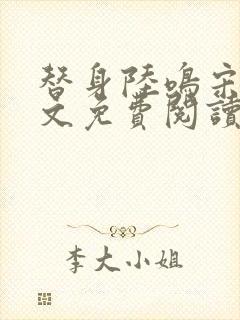 替身陸鳴宋
文免費閱讀
李大小姐